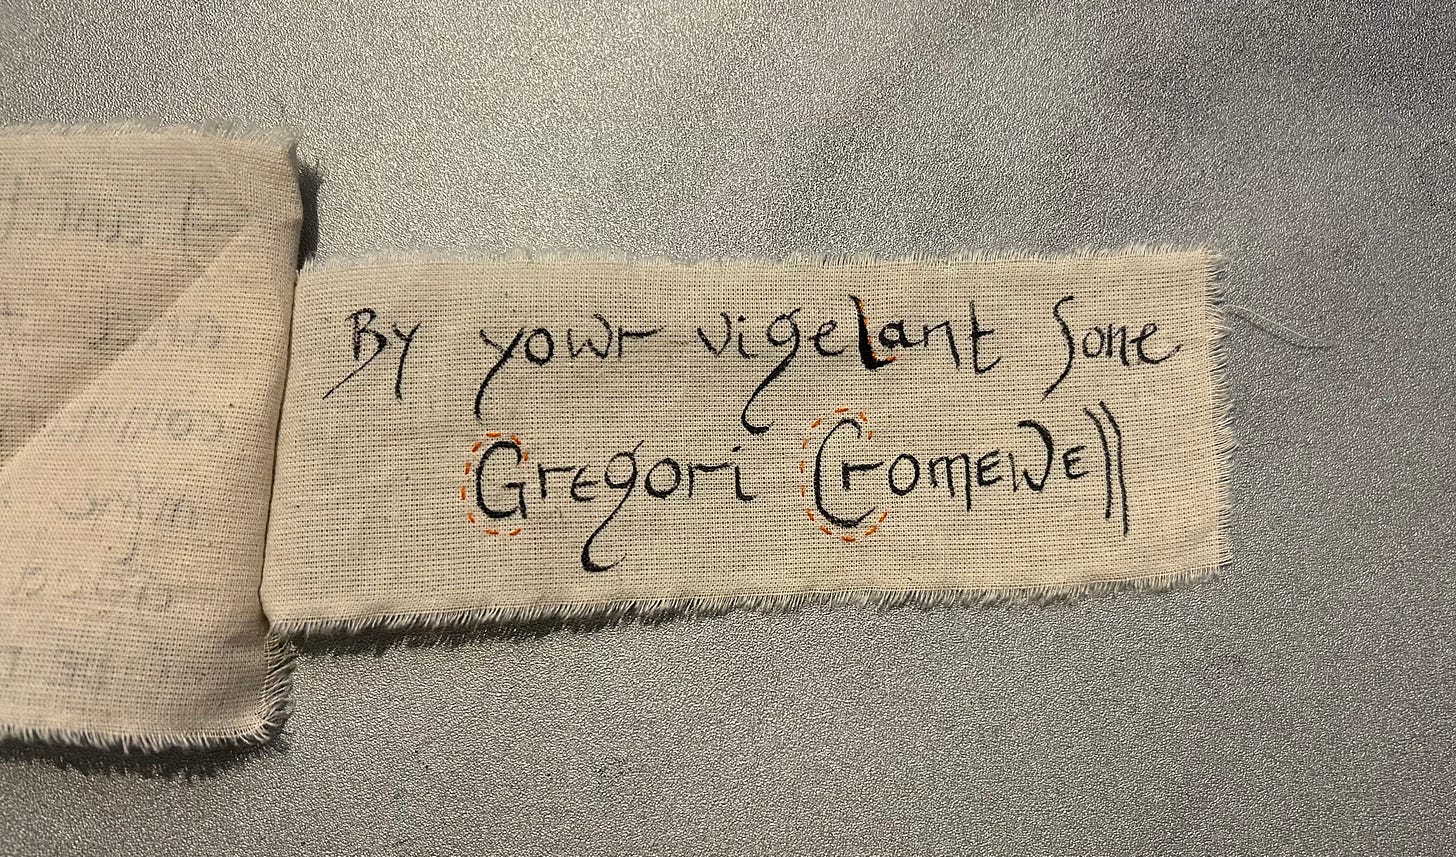 By yowr vigelant sone
Gregori Cromewell